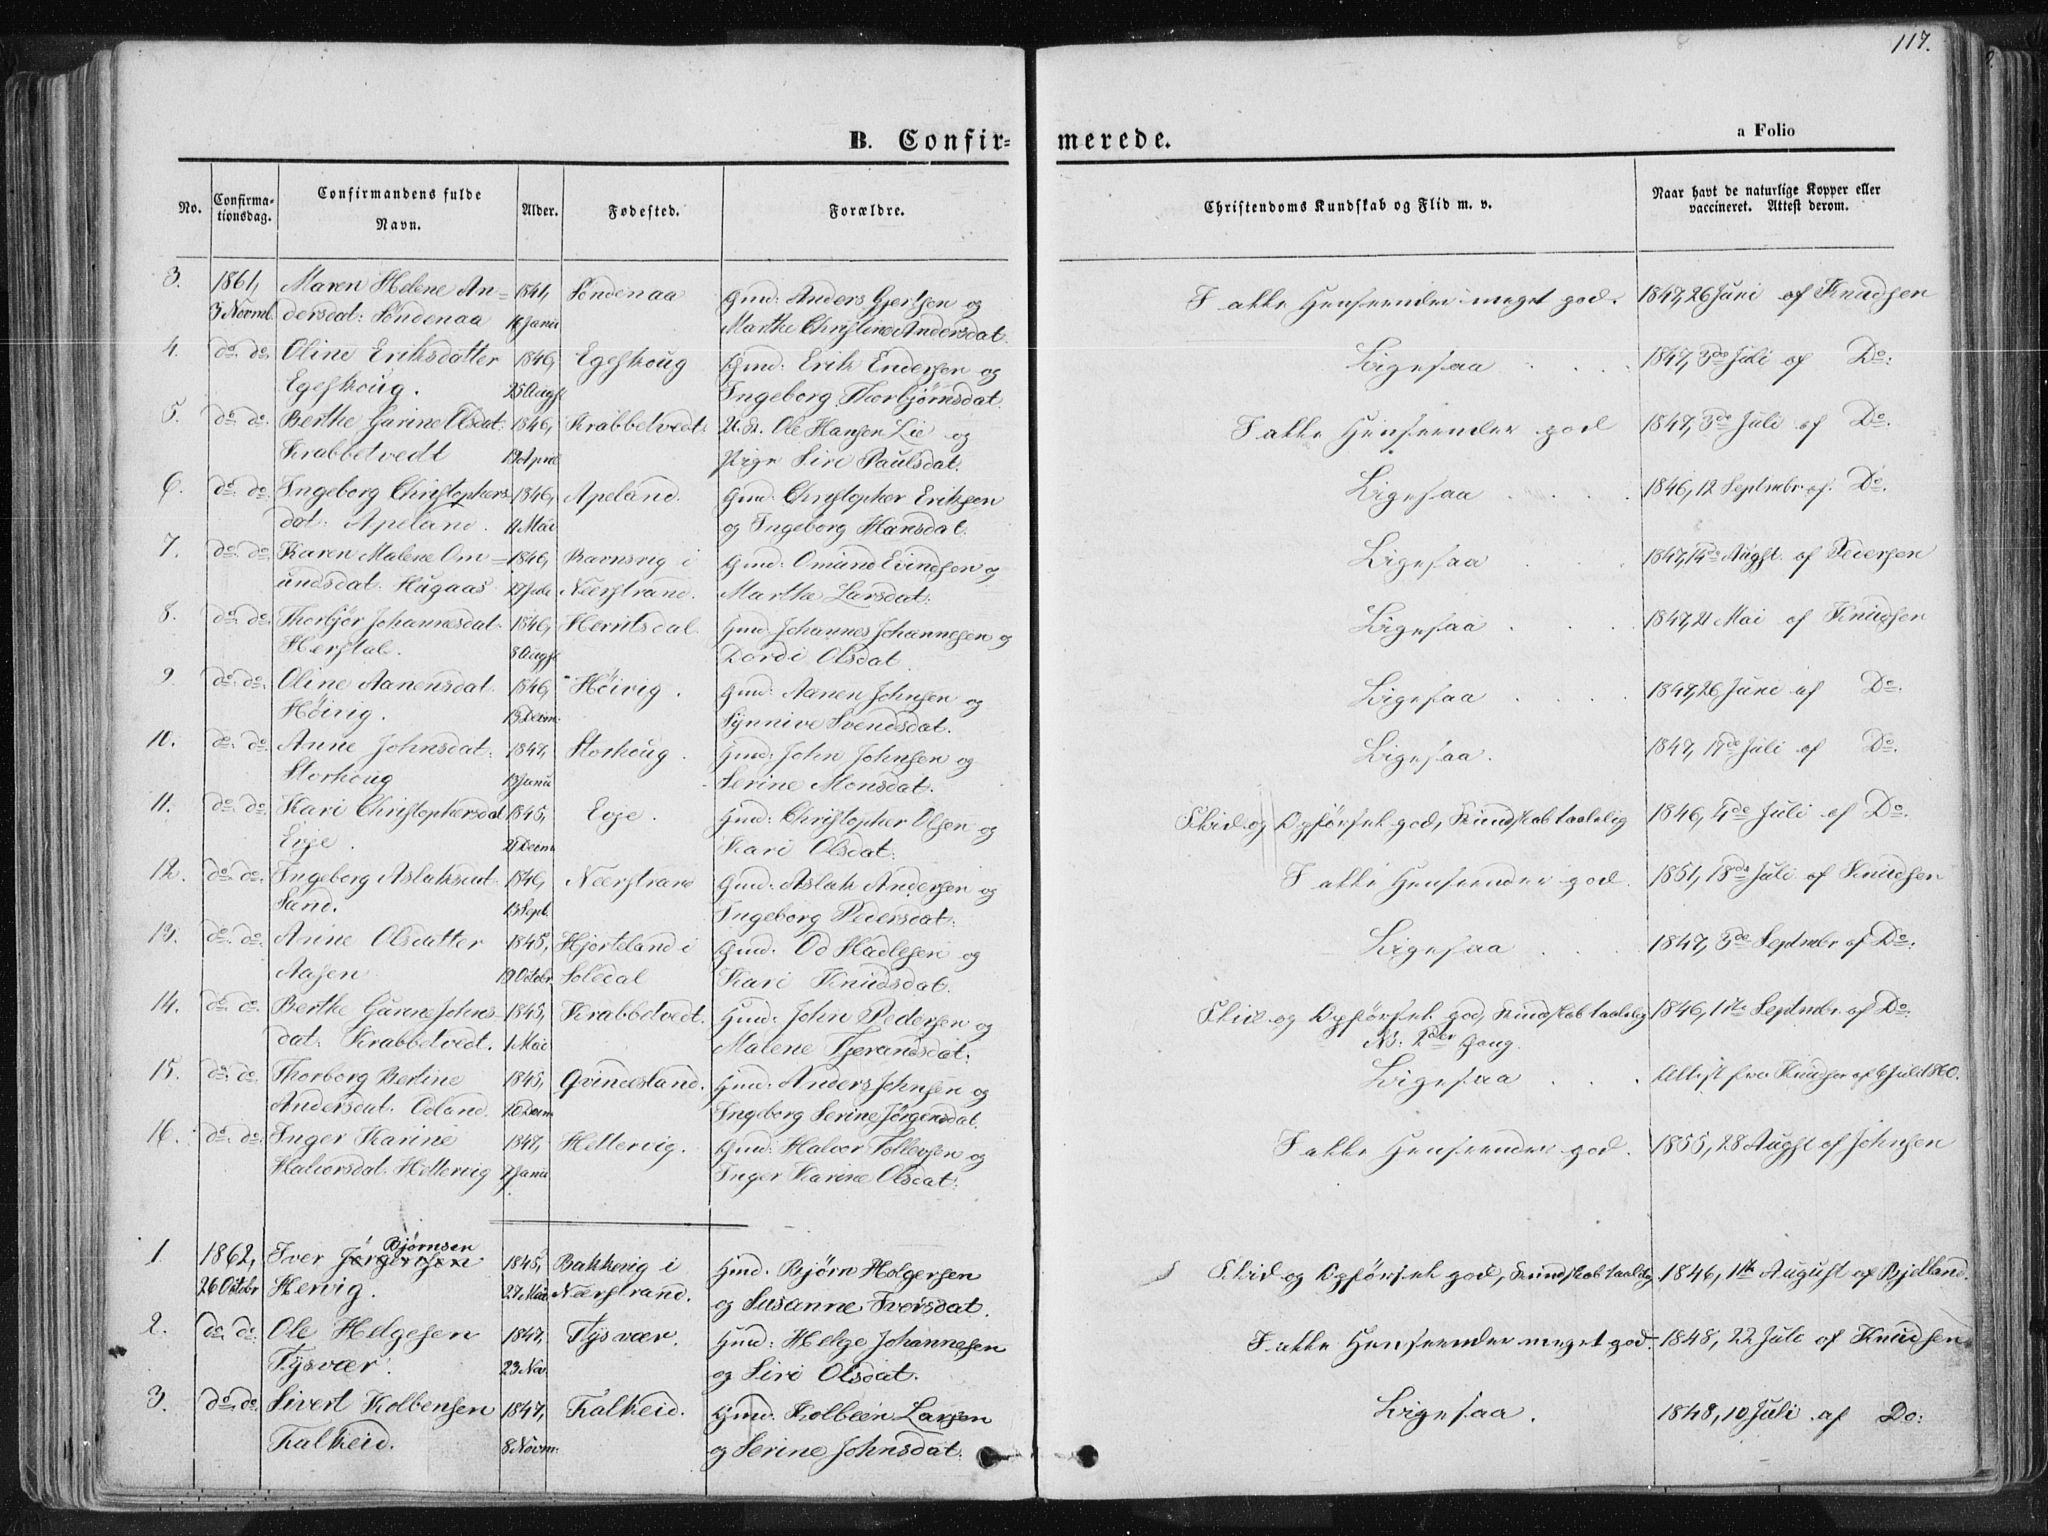 117.
B. Confir= merede.
a Folio
No.
Confirma-
tionsdag.
Confirmandens fulde
Navn.
Alder.
Fødested.
Forældre.
Christendoms Kundskab og Flid m. v.
Naar havt de naturlige Kopper eller
vaccineret. Attest derom.
3. 1861, Maren Helene An= Søndenaa Gmd: Anders Gjertsen og I alle Henseender meget god. 1847, 26 Juni af Knudsen
3 Novmb. dersdat: Søndenaa Marthe Christine Andersdat.
4. do. do. Oline Eriksdatter 1846, Egeskoug Gmd: Erik Endersen og Ligesaa 1847, 3de Juli af Do:
Egeskoug. 25 Augst Ingeborg Thorbjørnsdat.
5. do. do. Berthe Garine Olsdat. 1846, Krabbetvedt. U. K. Ole Hansen Lie og I alle Henseender god 1847, 3de Juli af Do.
Krabbetvedt Pige Siri Paulsdat.
6. do. do. Ingeborg Christophers 1846, Apeland. Gmd: Christopher Eriksen Ligesaa 1846, 12 Septmbr. af. Do.
dat: Apeland. 11 Mai og Ingeborg Hansdat.
7. do. do. Karen Malene Om= 1846, i Gmd: Omund Eivindsen og Ligesaa 1847, 14de Augst. af Pedersen
undsdat. Hugaas Neerstrand. Marthe Larsdat.
8. do. do. Thorbjør Johannesdat. 1846, Gmd Johannes Johannesen og Ligesaa 1847, 21 Mai af Knudsen
Herstal. 8 Augst Dordi Olsdat
9. do. do. Oline Aanensdat. 1846, Høivig. Gmd: Aanen Johnsen og Ligesaa 1847, 26 Juni af Do.
Høivig. 13 Decm. Synnive Svendsdat.
10. do. do. Anne Johnsdat: 1847, Storhoug. Gmd: John Johnsen og Ligesaa. 1847, 17de Juli af Do.
Storhoug 13 Janu Serine Monsdat.
11. do. do. Kari Christophersdat 1845, Evje. Gmd: Christopher Olsen og Flid og Opførsel god, Kundskab taalelig 1846, 4de Juli af Do.
Evje. 21 Decm Kari Olsdat:
12. do. do. Ingeborg Aslaksdat. 1846, Neerstrand Gmd: Aslak Andersen og I alle Henseender god. 1851, 18de Juli af Knudsen
Sand. 13 Sept. Ingeborg Pedersdat:
13. do. do. Anne Olsdatter 1845, Hjorteland i Gmd: Od Hadlesen og Ligesaa 1847, 3de Septmbr af Do:
Aasen 19 Octobr Soledal Kari Knudsdat.
14. do. do. Berthe Garine Johns= 1845, Krabbetvedt. Gmd: John Pedersen og Flid og Opførsel god, Kundskab taalelig 1846, 1ste Septmbr. af Do:
dat: Krabbetvedt. 1 Mai Malene Tjerandsdat. No: 2den Gang.
15. do. do. Thorborg Bertine 1845, Qvindesland. Gmd: Anders Johnsen og Ligesaa Attest fra Knudsen af 6 Juli 1860.
Andersdat. Odland. 10 Decm Ingeborg Serine Jørgensdat.
16. do. do. Inger Karine 1847, Hettervig. Gmd: Halvor Tollevsen og I alle Henseender god. 1855, 28 Augst af Johnsen
Halvorsdat. Hettervig 7 Janu Inger Karine Olsdat:
Bjørnsen
1. 1862, Iver Jørgensen 1845, Bakkevig i Gmd. Bjørn Holgersen Flid og Opførsel god, Kundskab taalelig 1846, 1ste August af Bjelland.
26 Octobr Hervig. 27 Mai Neerstrand. og Susanne Iversdat.
2. do. do. Ole Helgesen 1847, Tysvær. Gmd: Helge Johannesen I alle Henseender meget god. 1848, 22 Juli af Knudsen
Tysvær. 23 Nov. og Siri Olsdat.
3. do. do. Sivert Kolbensen 1847, Falkeid. Gmd: Kolbeen Larsen Ligesaa. 1848, 10 Juli af Do:
Falkeid. 8 Novm: og Serine Johnsdat.